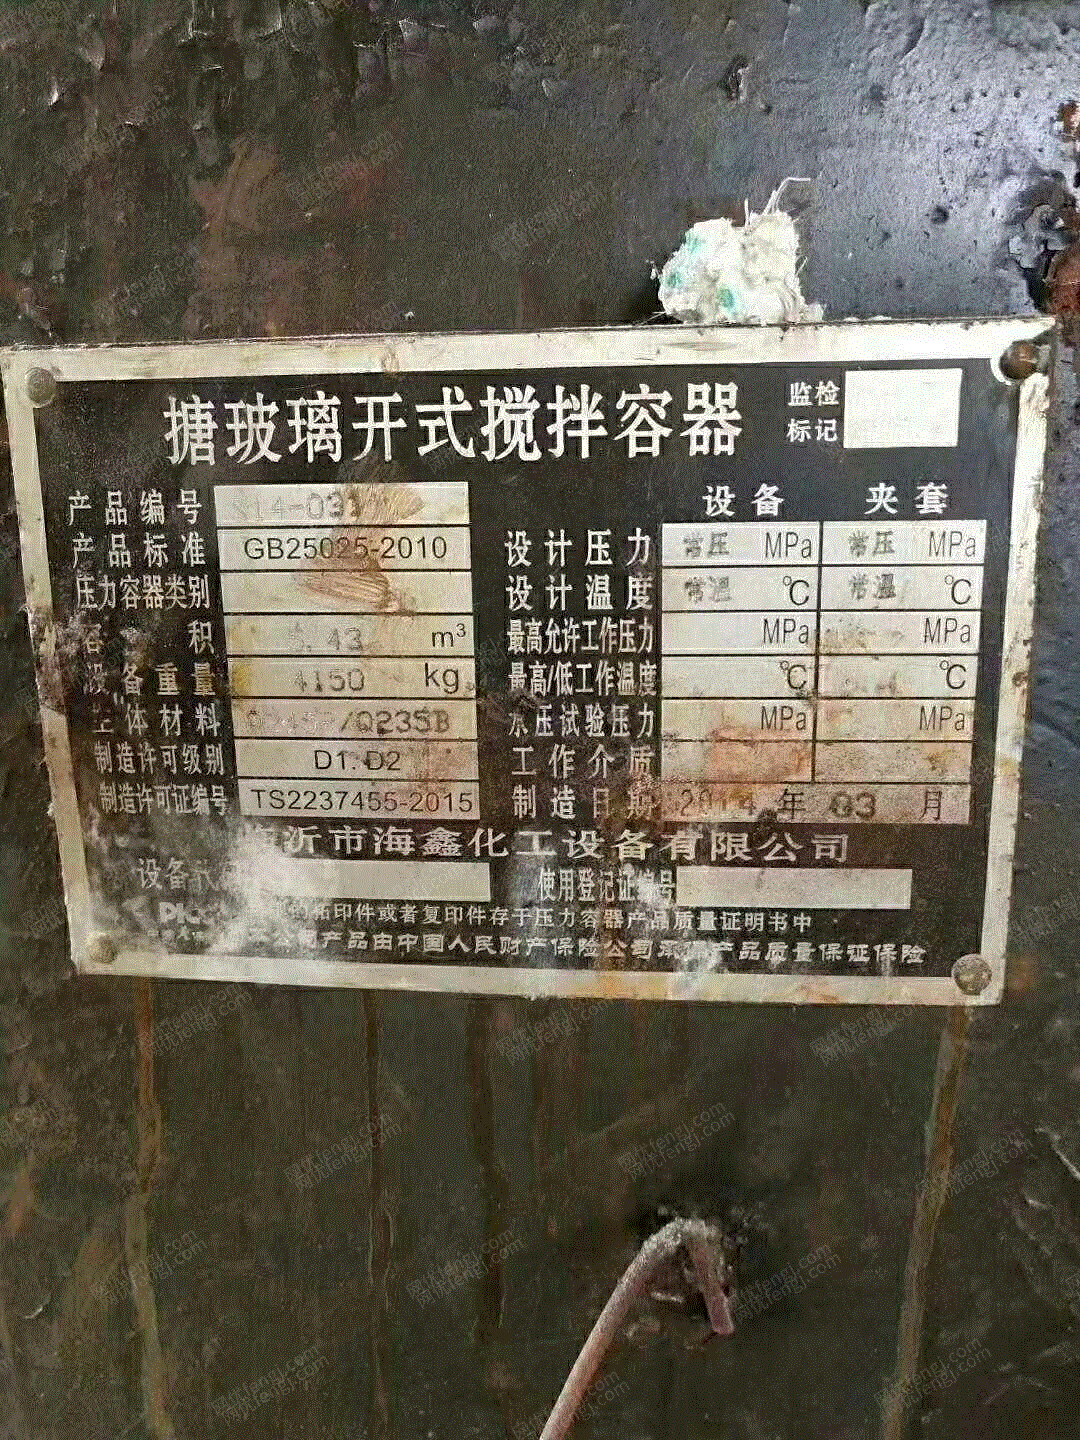 搪玻璃开式搅拌容器
监检
标记
设备 夹套
产品编号
产品标准 GB25025-2010
压力容器类别
积 .43 m³
设备重量 4150 kg
体材料 /Q235B
制造许可级别 D1. D2
制造许可证编号 TS2237455-2015
设计压力 常压 MPa 常压 MPa
设计温度 常温 ℃ 常温 ℃
最高允许工作压力 MPa MPa
最高/低工作温度 ℃ ℃
水压试验压力 MPa MPa
工作介质
制造日期 2014 年 03 月
沂市海鑫化工设备有限公司
设备 使用登记证编号
拓印件或者复印件存于压力容器产品质量证明书中
公司产品由中国人民财产保险公司承 产品质量保证保险